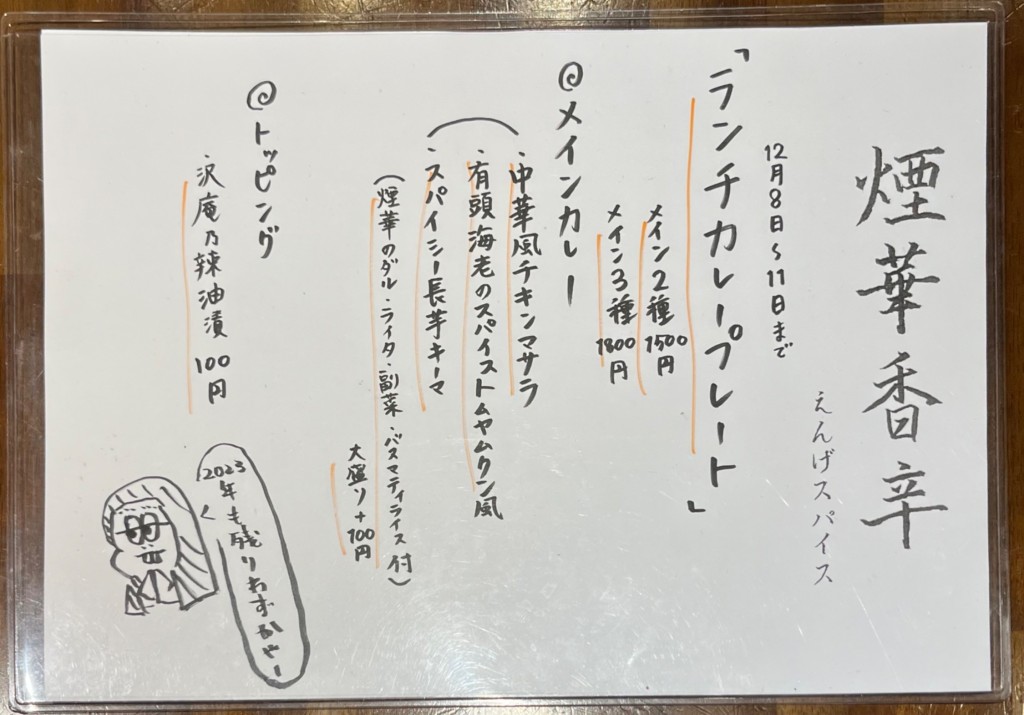 煙華香辛
えんげスパイス
12月8日〜11日まで
「ランチカレープレート」
メイン2種 1500円
メイン3種 1800円
@メインカレー
・中華風チキンマサラ
・有頭海老のスパイストムヤムクン風
・スパイシー長芋キーマ
(煙華のダル・ライタ・副菜・バスマティライス付)
大盛り+100円
@トッピング
・沢庵乃辣油漬 100円
2023年も残りわずかやー